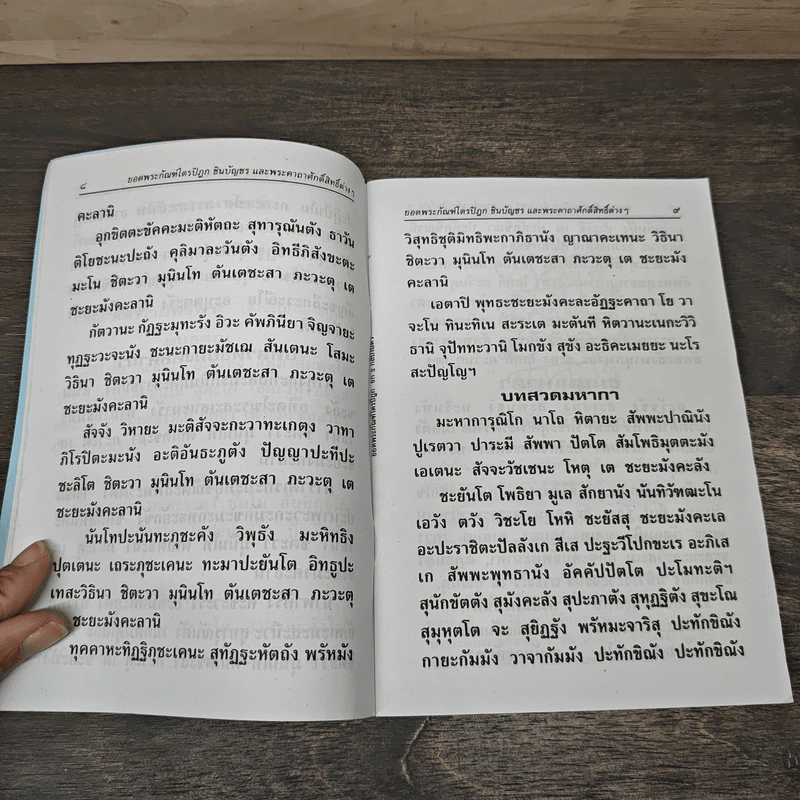 ๘ ยอดพระกัณฑ์ไตรปิฎก ชินบัญชร และพระคาถาศักดิ์สิทธิ์ต่างๆ
คะลานิ
อุกขิตตะขัคคะมะติหัตถะ สุทารุณันตัง ธาวัน
ติโยชะนะปะถัง คุลิมาละวันตัง อิทธีภิสังขะตะ
มะโน ชิตะวา มุนินโท ตันเตชะสา ภะวะตุ เต
ชะยะมังคะลานิ
กัตวานะ กัฏฐะมุทะรัง อิวะ คัพภินียา จิญจายะ
ทุฏฐะวะจะนัง ชะนะกายะมัชเฌ สันเตนะ โสมะ
วิธินา ชิตะวา มุนินโท ตันเตชะสา ภะวะตุ เต
ชะยะมังคะลานิ
สัจจัง วิหายะ มะติสัจจะกะวาทะเกตุง วาทา
ภิโรปิตะมะนัง อะติอันธะภูตัง ปัญญาปะทีปะ
ชะลิโต ชิตะวา มุนินโท ตันเตชะสา ภะวะตุ เต
ชะยะมังคะลานิ
นันโทปะนันทะภุชะคัง วิพุธัง มะหิทธิง
ปุตเตนะ เถระภุชะเคนะ ทะมาปะยันโต อิทธูปะ
เทสะวิธินา ชิตะวา มุนินโท ตันเตชะสา ภะวะตุ
ชะยะมังคะลานิ
ทุคคาหะทิฏฐิภุชะเคนะ สุทัฏฐะหัตถัง พรัหมัง
ยอดพระกัณฑ์ไตรปิฎก ชินบัญชร และพระคาถาศักดิ์สิทธิ์ต่างๆ ๙
วิสุทธิชุติมิทธิพะกาภิธานัง ญาณาคะเทนะ วิธินา
ชิตะวา มุนินโท ตันเตชะสา ภะวะตุ เต ชะยะมัง
คะลานิ
เอตาปิ พุทธะชะยะมังคะละอัฏฐะคาถา โย วา
จะโน ทินะทิเน สะระเต มะตันที หิตวานะเนกะวิวิ
ธานิ จุปัททะวานิ โมกขัง สุขัง อะธิคะเมยยะ นะโร
สะปัญโญฯ
บทสวดมหากา
มะหาการุณิโก นาโถ หิตายะ สัพพะปาณินัง
ปูเรตวา ปาระมี สัพพา ปัตโต สัมโพธิมุตตะมัง
เอเตนะ สัจจะวัชเชนะ โหตุ เต ชะยะมังคะลัง
ชะยันโต โพธิยา มูเล สักยานัง นันทิวัฑฒะโน
เอวัง ตวัง วิชะโย โหหิ ชะยัสสุ ชะยะมังคะเล
อะปะราชิตะปัลลังเก สีเส ปะฐะวีโปกขะเร อะภิเส
เก สัพพะพุทธานัง อัคคัปปัตโต ปะโมทะติฯ
สุนักขัตตัง สุมังคะลัง สุปะภาตัง สุหุฏฐิตัง สุขะโณ
สุมุหุตโต จะ สุยิฏฐัง พรัหมะจาริสุ ปะทักขิณัง
กายะกัมมัง วาจากัมมัง ปะทักขิณัง ปะทักขิณัง